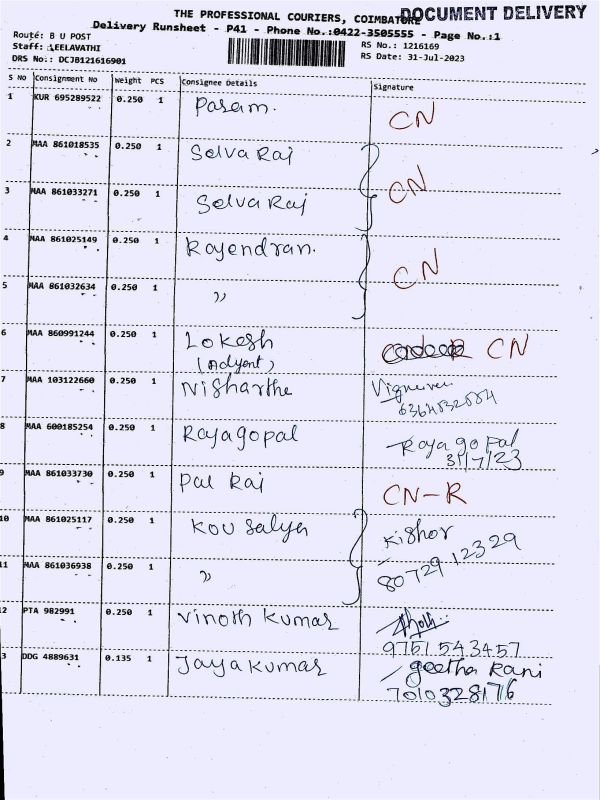 THE PROFESSIONAL COURIERS, COIMBATORE
DOCUMENT DELIVERY
Delivery Runsheet - P41 - Phone No.:0422-3505555 - Page No.:1
Route: B U POST
Staff: LEELAVATHI
DRS No.: DCJB121616901
RS No.: 1216169
RS Date: 31-Jul-2023
S No Consignment No Weight PCS Consignee Details Signature
1 KUR 695289522 0.250 1 Pasam. CN
2 MAA 861018535 0.250 1 Selva Raj
3 MAA 861033271 0.250 1 Selva Raj CN
4 MAA 861025149 0.250 1 Rajendran.
5 MAA 861032634 0.250 1 " CN
6 MAA 860991244 0.250 1 Lokesh CN
(Adyont)
7 MAA 103122660 0.250 1 Nisharthe
8 MAA 600185254 0.250 1 Rajagopal Rajagopal
31/7/23
9 MAA 861033730 0.250 1 Pal Raj CN-R
10 MAA 861025117 0.250 1 Kousalya Kishor
11 MAA 861036938 0.250 1 " 80729 12329
12 PTA 982991 0.250 1 Vinoth Kumar
9751543457
3 DDG 4889631 0.135 1 Jaya Kumar geetha Rani
7010328176